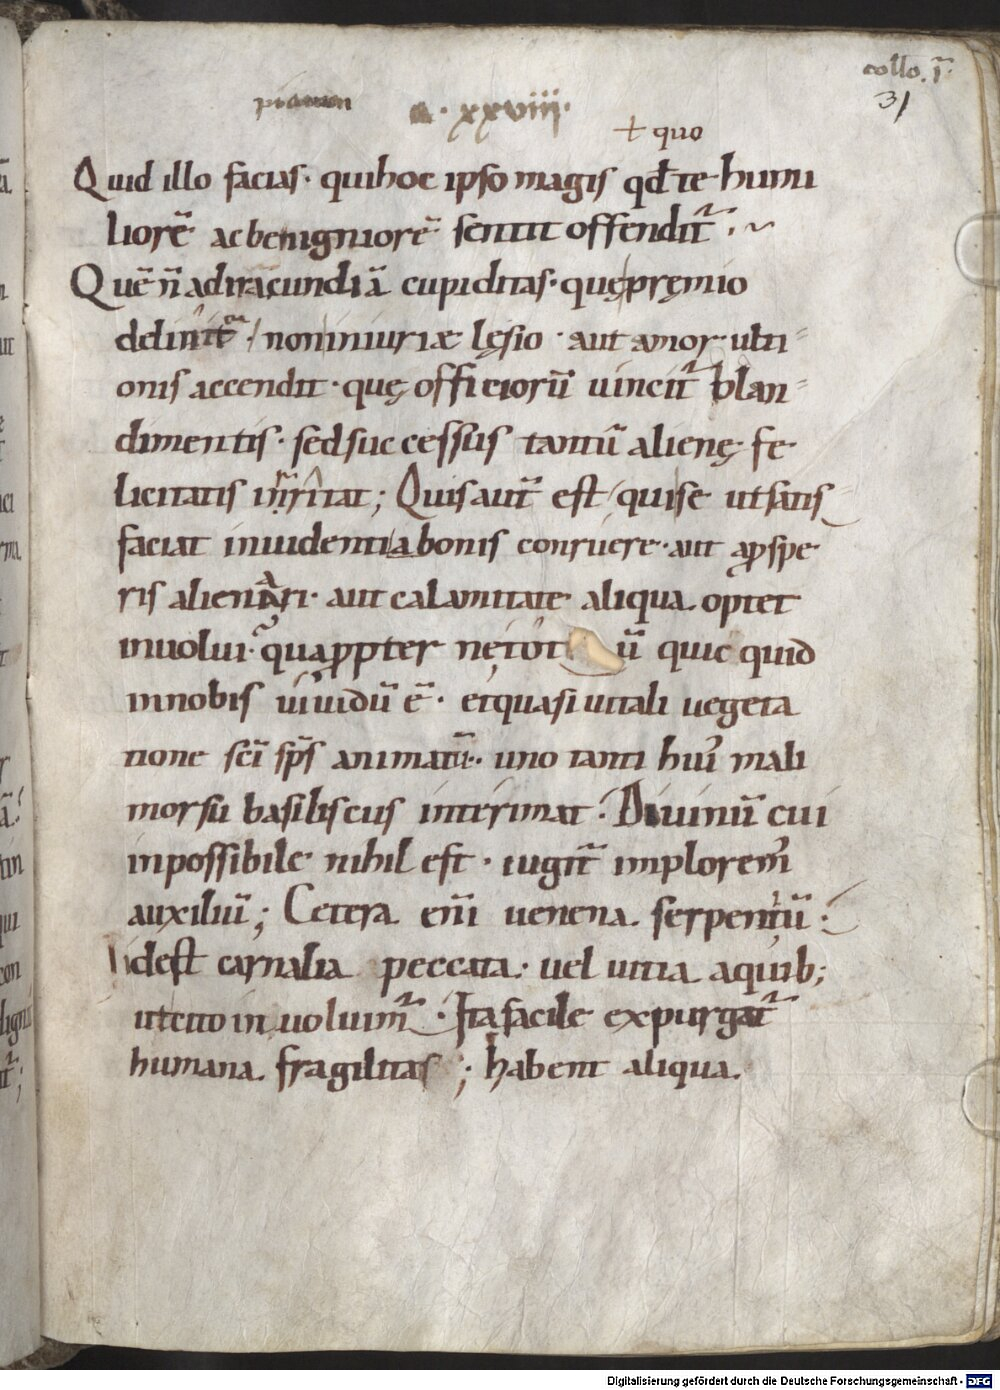 collo. ī
31
a. xxviii.
+ quo
Quid illo facias· quihoc ipso magis qđ te humi
liorē ac benigniorē sentit offendit᷑.
Quē n̄ adiracundiā cupiditas· quę pręmio
non iniuriæ lęsio · aut amor ulti-
onis accendit· quę officiorū uincit᷑ blan-
dimentis· sed successus tantū alienę fe
licitatis irritat; Quis aut̄ est quise utsatis
faciat inuidenti a bonis conruere· aut aꝓspe
ris alienari· aut calamitate aliqua optet
inuolui· quaꝓpter ne tot ū quic quid
innobis uiuidū ē· etquasi uitali uegeta
tione sc̄i sp̄s animatū· uno tanti hui᷒ mali
morsu basiliscus interimat· Diuinū cui
inpossibile nihil est· iugit̄ implorem᷒
auxiliū; Cetera eni uenena serpentū·
idest carnalia peccata· uel uitia aquib;
utcito in uoluim᷒· Ita facile expurgat᷑
humana fragilitas; habent aliqua.
Digitalisierung gefördert durch die Deutsche Forschungsgemeinschaft - DFG